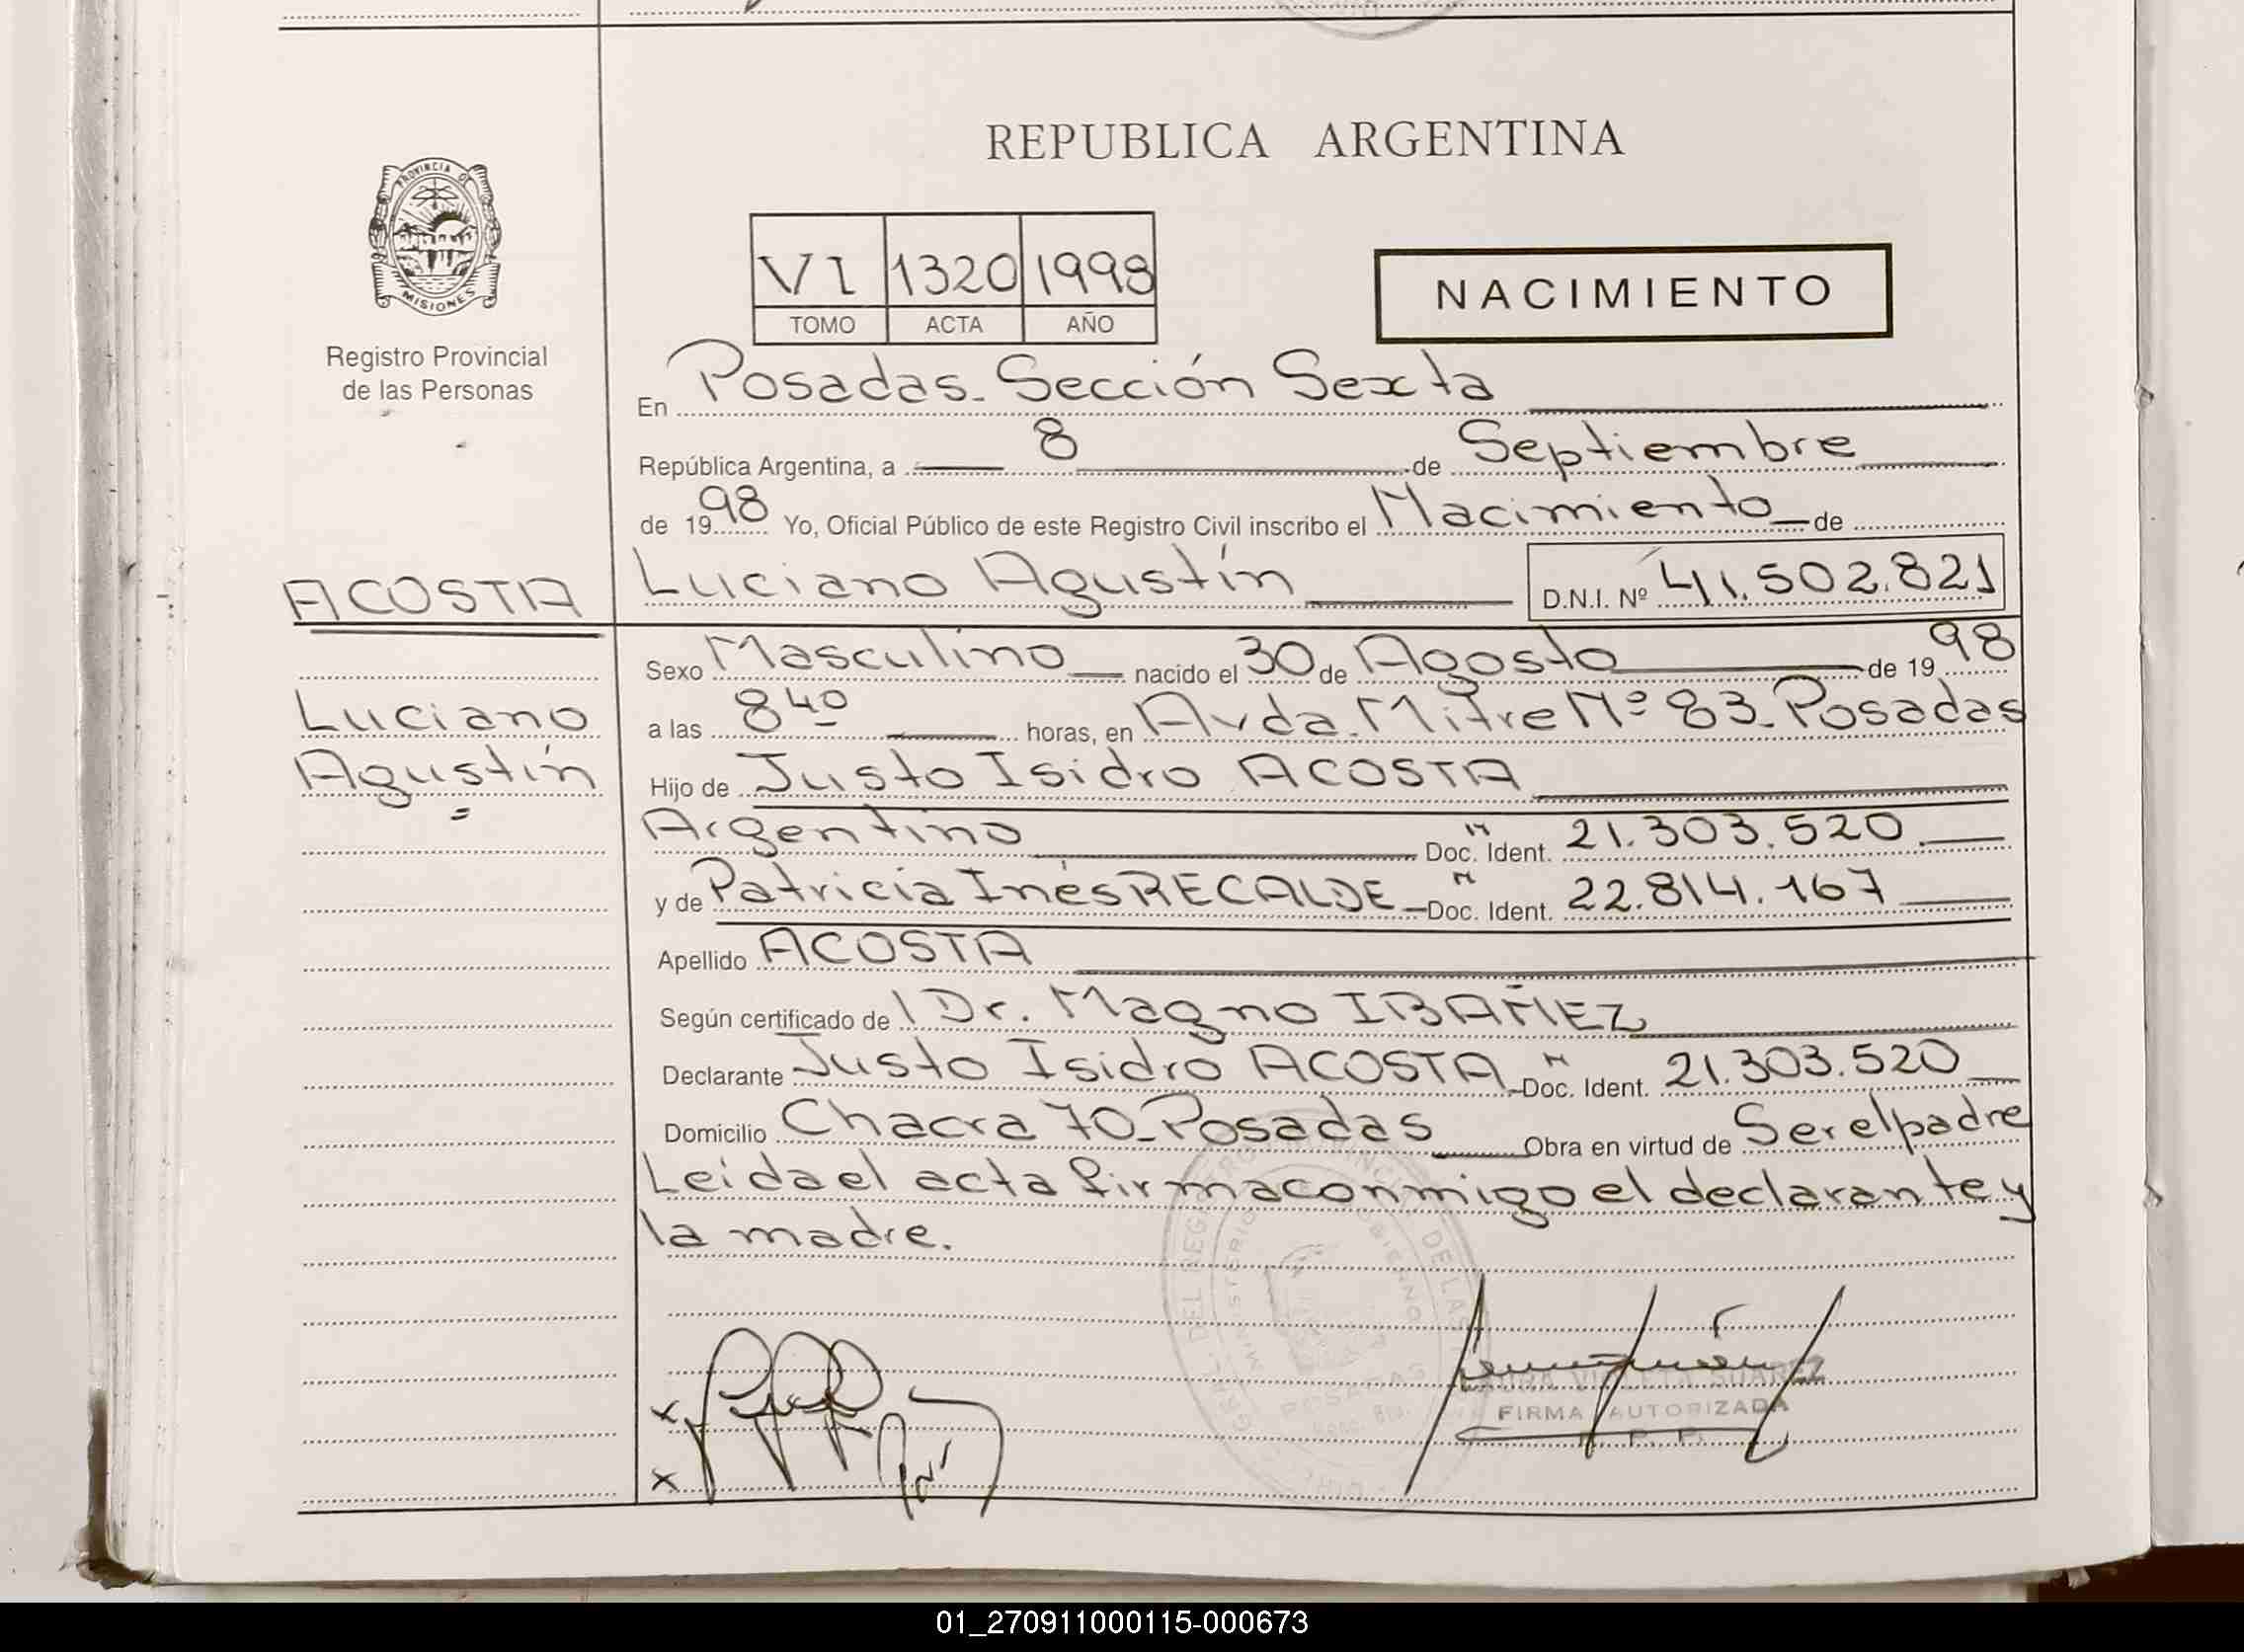 REPUBLICA ARGENTINA
PROVINCIA DE
MISIONES
Registro Provincial
de las Personas
VI 1320 1998
TOMO ACTA AÑO
NACIMIENTO
En Posadas. Sección Sexta
República Argentina, a 8 de Septiembre
de 1998 Yo, Oficial Público de este Registro Civil inscribo el Nacimiento de
ACOSTA Luciano Agustín D.N.I. Nº 41.502.821
Sexo Masculino nacido el 30 de Agosto de 1998
Luciano a las 8 40 horas, en Avda. Mitre Nº 83. Posadas
Agustín Hijo de Justo Isidro ACOSTA
Argentino Doc. Ident. M 21.303.520
y de Patricia Inés RECALDE Doc. Ident. M 22.814.167
Apellido ACOSTA
Según certificado de Dr. Magno IBAÑEZ
Declarante Justo Isidro ACOSTA Doc. Ident. M 21.303.520
Domicilio Chacra 70. Posadas Obra en virtud de Ser el padre
Leída el acta firma conmigo el declarante y
la madre.
LAURA VIOLETA SUAREZ
FIRMA AUTORIZADA
R. P. P.
POSADAS
01_270911000115-000673